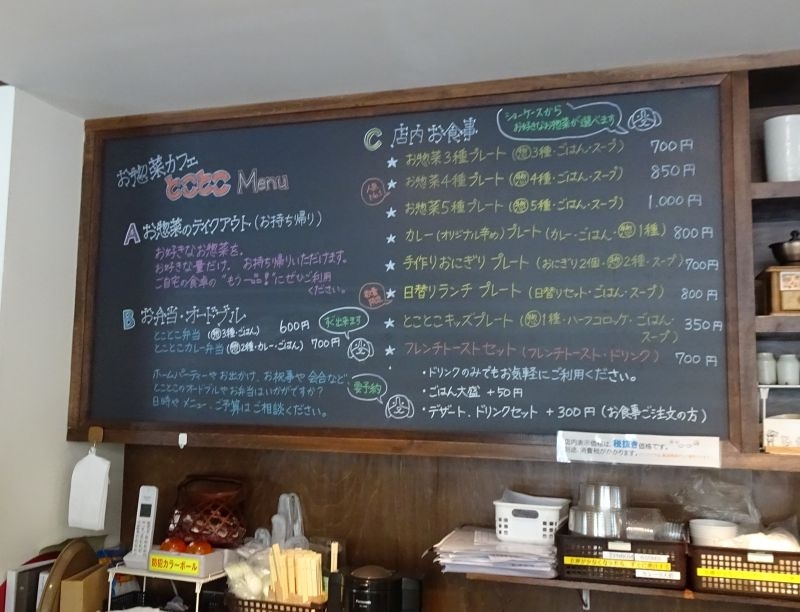 お惣菜カフェ
とことこ Menu
A お惣菜のテイクアウト(お持ち帰り)
お好きなお惣菜を、
お好きな量だけ、お持ち帰りいただけます。
ご自宅の食卓の"もう一品!"にぜひご利用
ください。
B お弁当・オードブル
とことこ弁当 (惣3種・ごはん) 600円
とことこカレー弁当 (惣2種・カレー・ごはん) 700円
すぐ出来ます
ホームパーティーやお出かけ、お祝事や会合など、
とことこのオードブルやお弁当はいかがですか?
日時やメニュー、ご予算はご相談ください。
要予約
C 店内お食事
ショーケースから
お好きなお惣菜が選べます
★ お惣菜3種プレート (惣3種・ごはん・スープ) 700円
人気
★ お惣菜4種プレート (惣4種・ごはん・スープ) 850円
★ お惣菜5種プレート (惣5種・ごはん・スープ) 1.000円
★ カレー(オリジナル辛め)プレート (カレー・ごはん・惣1種) 800円
★ 手作りおにぎりプレート (おにぎり2個・惣2種・スープ) 700円
★ 日替りランチプレート (日替りセット・ごはん・スープ) 800円
★ とことこキッズプレート (惣1種・ハーフコロッケ・ごはん・スープ) 350円
★ フレンチトーストセット (フレンチトースト・ドリンク) 700円
・ドリンクのみでもお気軽にご利用ください。
・ごはん大盛 +50円
・デザート、ドリンクセット +300円(お食事ご注文の方)
店内表示価格は、税抜き価格です。
別途、消費税がかかります。
防犯カラーボール